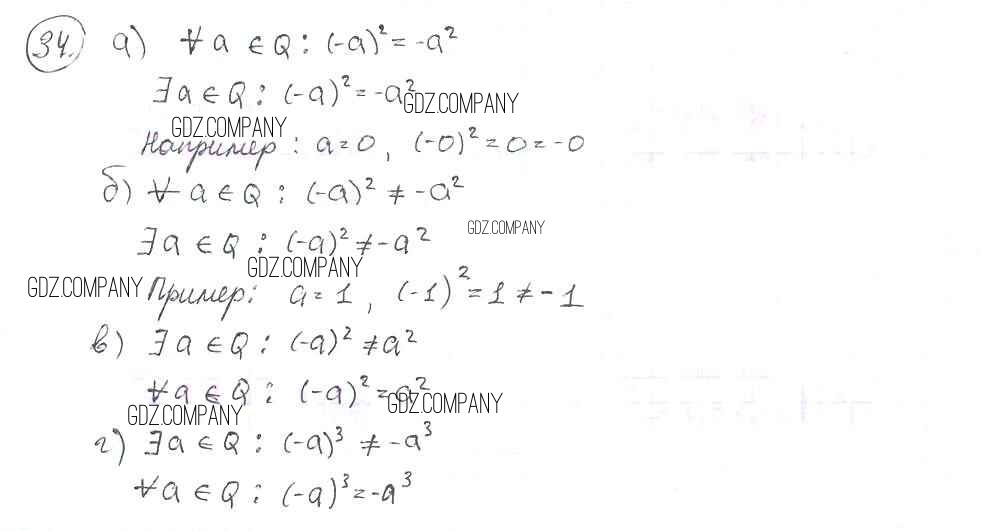 34. а) ∀ a ∈ Q : (-a)² = -a²
∃ a ∈ Q : (-a)² = -a²
GDZ.COMPANY
GDZ.COMPANY
Например : a = 0 , (-0)² = 0 = -0
б) ∀ a ∈ Q : (-a)² ≠ -a²
GDZ.COMPANY
∃ a ∈ Q : (-a)² ≠ -a²
GDZ.COMPANY
GDZ.COMPANY
Пример : a = 1 , (-1)² = 1 ≠ -1
в) ∃ a ∈ Q : (-a)² ≠ a²
∀ a ∈ Q : (-a)² = a²
GDZ.COMPANY
GDZ.COMPANY
г) ∃ a ∈ Q : (-a)³ ≠ -a³
∀ a ∈ Q : (-a)³ = -a³